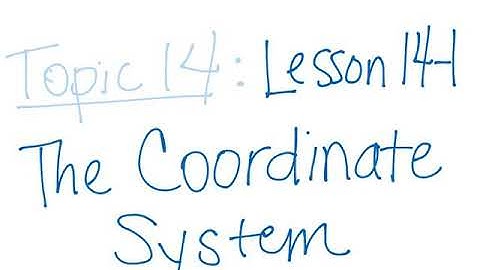 Topic 14: Lesson 14-1
The Coordinate
System